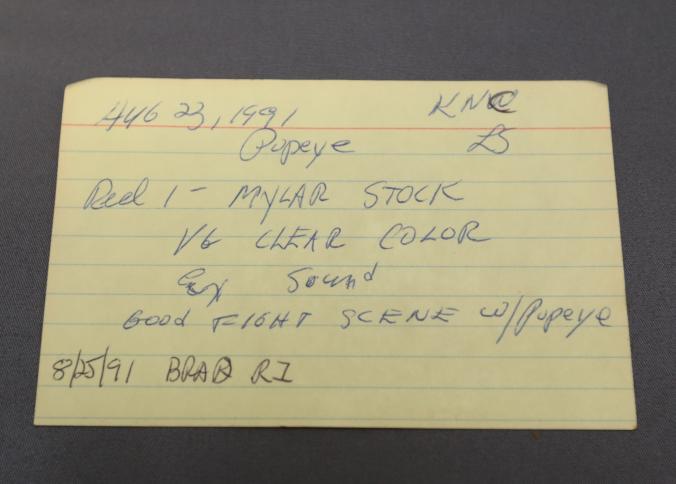 Aug 23, 1991 KNC
Popeye LS
Reel 1 - MYLAR STOCK
VG CLEAR COLOR
Sound
Good FIGHT SCENE w/Popeye
8/25/91 BRAD RI